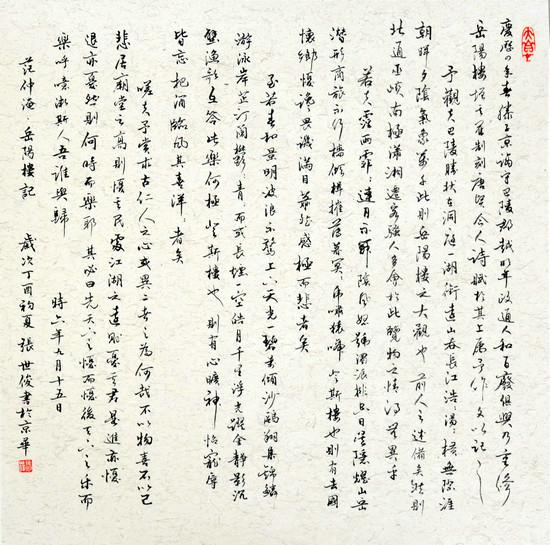 慶歷四年春滕子京謫守巴陵郡越明年政通人和百廢俱興乃重修
岳陽樓增其舊制刻唐賢今人詩賦於其上屬予作文以記之
予觀夫巴陵勝狀在洞庭一湖銜遠山吞長江浩浩湯湯橫無際涯
朝暉夕陰氣象萬千此則岳陽樓之大觀也前人之述備矣然則
北通巫峽南極瀟湘遷客騷人多會於此覽物之情得無異乎
若夫霪雨霏霏連月不開陰風怒號濁浪排空日星隱耀山岳
潛形商旅不行檣傾楫摧薄暮冥冥虎嘯猿啼登斯樓也則有去國
懷鄉憂讒畏譏滿目蕭然感極而悲者矣
至若春和景明波浪不驚上下天光一碧萬頃沙鷗翔集錦鱗
游泳岸芷汀蘭鬱鬱青青而或長煙一空皓月千里浮光躍金靜影沉
璧漁歌互答此樂何極登斯樓也則有心曠神怡寵辱
皆忘把酒臨風其喜洋洋者矣
嗟夫予嘗求古仁人之心或異二者之為何哉不以物喜不以己
悲居廟堂之高則憂其民處江湖之遠則憂其君是進亦憂
退亦憂然則何時而樂耶其必曰先天下之憂而憂後天下之樂而
樂乎噫微斯人吾誰與歸
時六年九月十五日
范仲淹岳陽樓記 歲次丁酉初夏張世俊書於京華